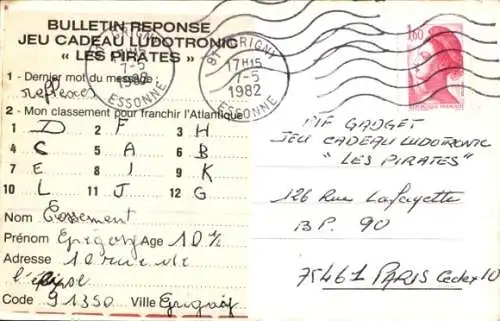 BULLETIN REPONSE
JEU CADEAU LUDOTRONIC
« LES PIRATES »
1 - Dernier mot du message :
reflexes
2 - Mon classement pour franchir l'Atlantique
1 D 2 F 3 H
4 C 5 A 6 B
7 E 8 I 9 K
10 L 11 J 12 G
Nom
Prénom Age 10
Adresse 10 rue de
Code 91350 Ville Grigny
91 GRIGNY
7-5
1982
ESSONNE
91 GRIGNY
17H15
7-5
1982
ESSONNE
1,60
PIF GADGET
JEU CADEAU LUDOTRONIC
"LES PIRATES"
126 Rue Lafayette
BP. 90
75461 PARIS Cedex 10